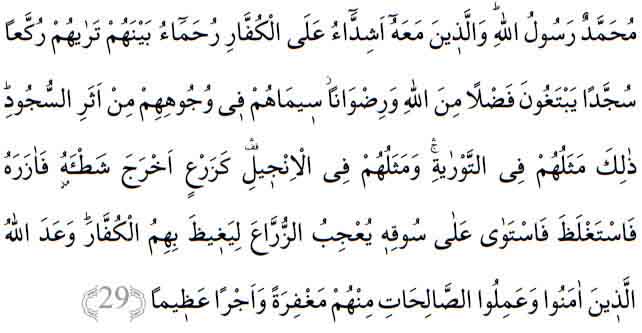 مُحَمَّدٌ رَسُولُ اللّٰهِۜ وَالَّذ۪ينَ مَعَهُٓ اَشِدَّٓاءُ عَلَى الْكُفَّارِ رُحَمَٓاءُ بَيْنَهُمْ تَرٰيهُمْ رُكَّعاً
سُجَّدًا يَبْتَغُونَ فَضْلًا مِنَ اللّٰهِ وَرِضْوَاناًۘ س۪يمَاهُمْ ف۪ى وُجُوهِهِمْ مِنْ اَثَرِ السُّجُودِۜ
ذٰلِكَ مَثَلُهُمْ فِى التَّوْرٰيةِۚ وَمَثَلُهُمْ فِى الْاِنْج۪يلِ۠ كَزَرْعٍ اَخْرَجَ شَطْـَٔهُ۫ فَاٰزَرَهُ
فَاسْتَغْلَظَ فَاسْتَوٰى عَلٰى سُوقِه۪ يُعْجِبُ الزُّرَّاعَ لِيَغ۪يظَ بِهِمُ الْكُفَّارَۜ وَعَدَ اللّٰهُ
الَّذ۪ينَ اٰمَنُوا وَعَمِلُوا الصَّالِحَاتِ مِنْهُمْ مَغْفِرَةً وَاَجْرًا عَظ۪يمًا ﴿29﴾